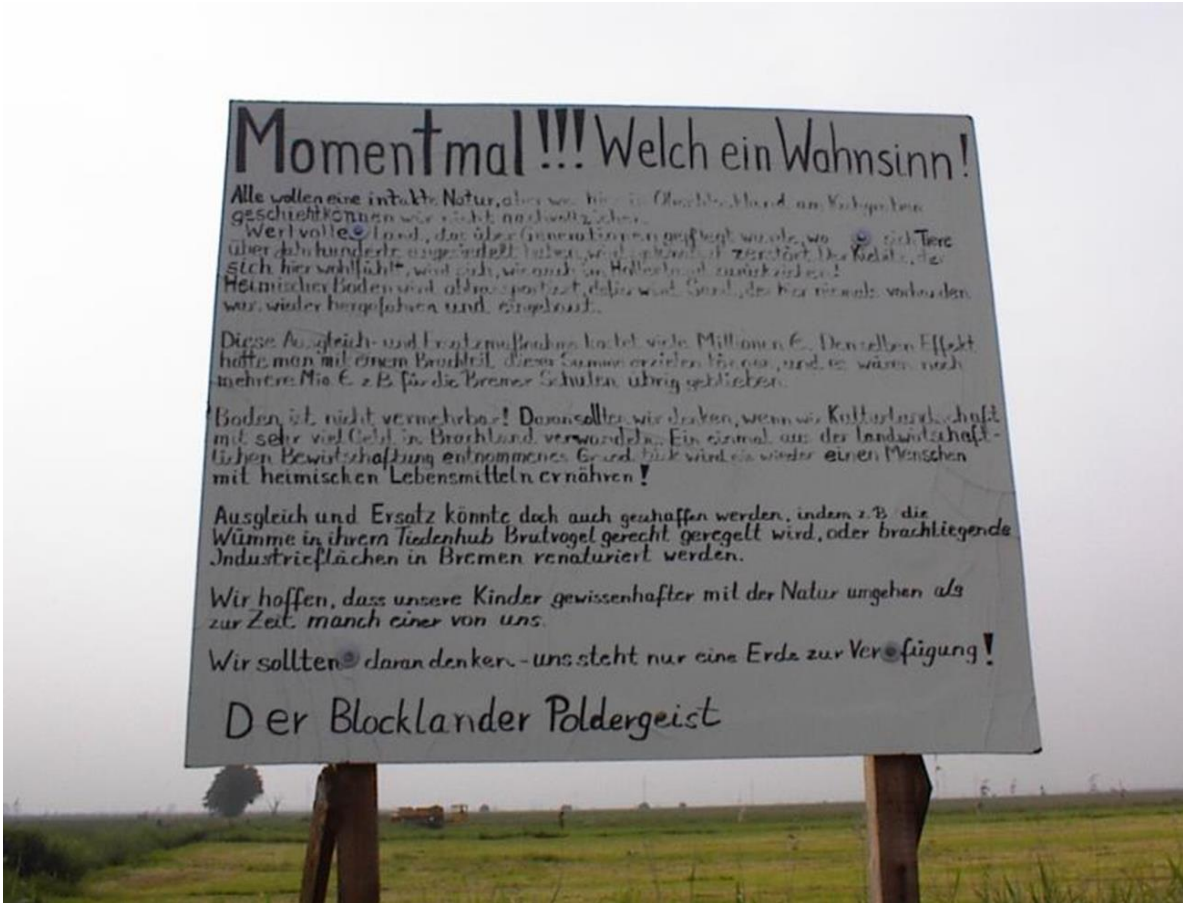 Momentmal!!! Welch ein Wahnsinn!
Alle wollen eine intakte Natur, aber was hier in am
geschieht können wir nicht nachvollziehen.
Wertvolles Land, das über Generationen gepflegt wurde, wo sich Tiere
über Jahrhunderte angesiedelt haben, wird zerstört. Der Kiebitz, der
sich hier wohlfühlt, wird sich, wie auch im Hollerland zurückziehen!
Heimischer Boden wird abtransportiert, dafür wird Sand, der hier niemals vorhanden
war, wieder hergefahren und eingebaut.
Diese Ausgleich- und Ersatzmaßnahme kostet viele Millionen €. Denselben Effekt
hätte man mit einem Bruchteil dieser Summe erzielen können, und es wären noch
mehrere Mio. € z.B. für die Bremer Schulen übrig geblieben.
Boden ist nicht vermehrbar! Daran sollten wir denken, wenn wir Kulturlandschaft
mit sehr viel Geld in Brachland verwandeln. Ein einmal aus der landwirtschaft-
lichen Bewirtschaftung entnommenes Grundstück wird nie wieder einen Menschen
mit heimischen Lebensmitteln ernähren!
Ausgleich und Ersatz könnte doch auch geschaffen werden, indem z.B. die
Wümme in ihrem Tiedenhub Brutvogel gerecht geregelt wird, oder brachliegende
Industrieflächen in Bremen renaturiert werden.
Wir hoffen, dass unsere Kinder gewissenhafter mit der Natur umgehen als
zur Zeit manch einer von uns.
Wir sollten daran denken - uns steht nur eine Erde zur Verfügung!
Der Blocklander Poldergeist